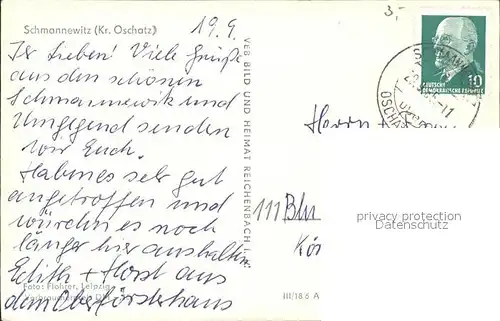 Schmannewitz (Kr. Oschatz)
19.9.
3,-
Ihr Lieben! Viele Grüße
aus den schönen
Schmannewitz und
Umgegend senden
wir Euch.
Habens sehr gut
angetroffen und
würden es noch
länger hier aushalten
Edith + Horst aus
dem Oberförsterhaus
Foto: Flohrer, Leipzig
VEB BILD UND HEIMAT REICHENBACH I. V.
10
DEUTSCHE
DEMOKRATISCHE REPUBLIK
OSCHATZ
Herrn +
111 Bln
Kör
privacy protection
Datenschutz
III/18/6 A